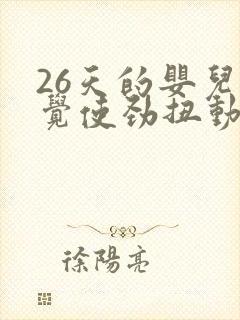 26天的嬰兒
覺使勁扭動
徐陽亮